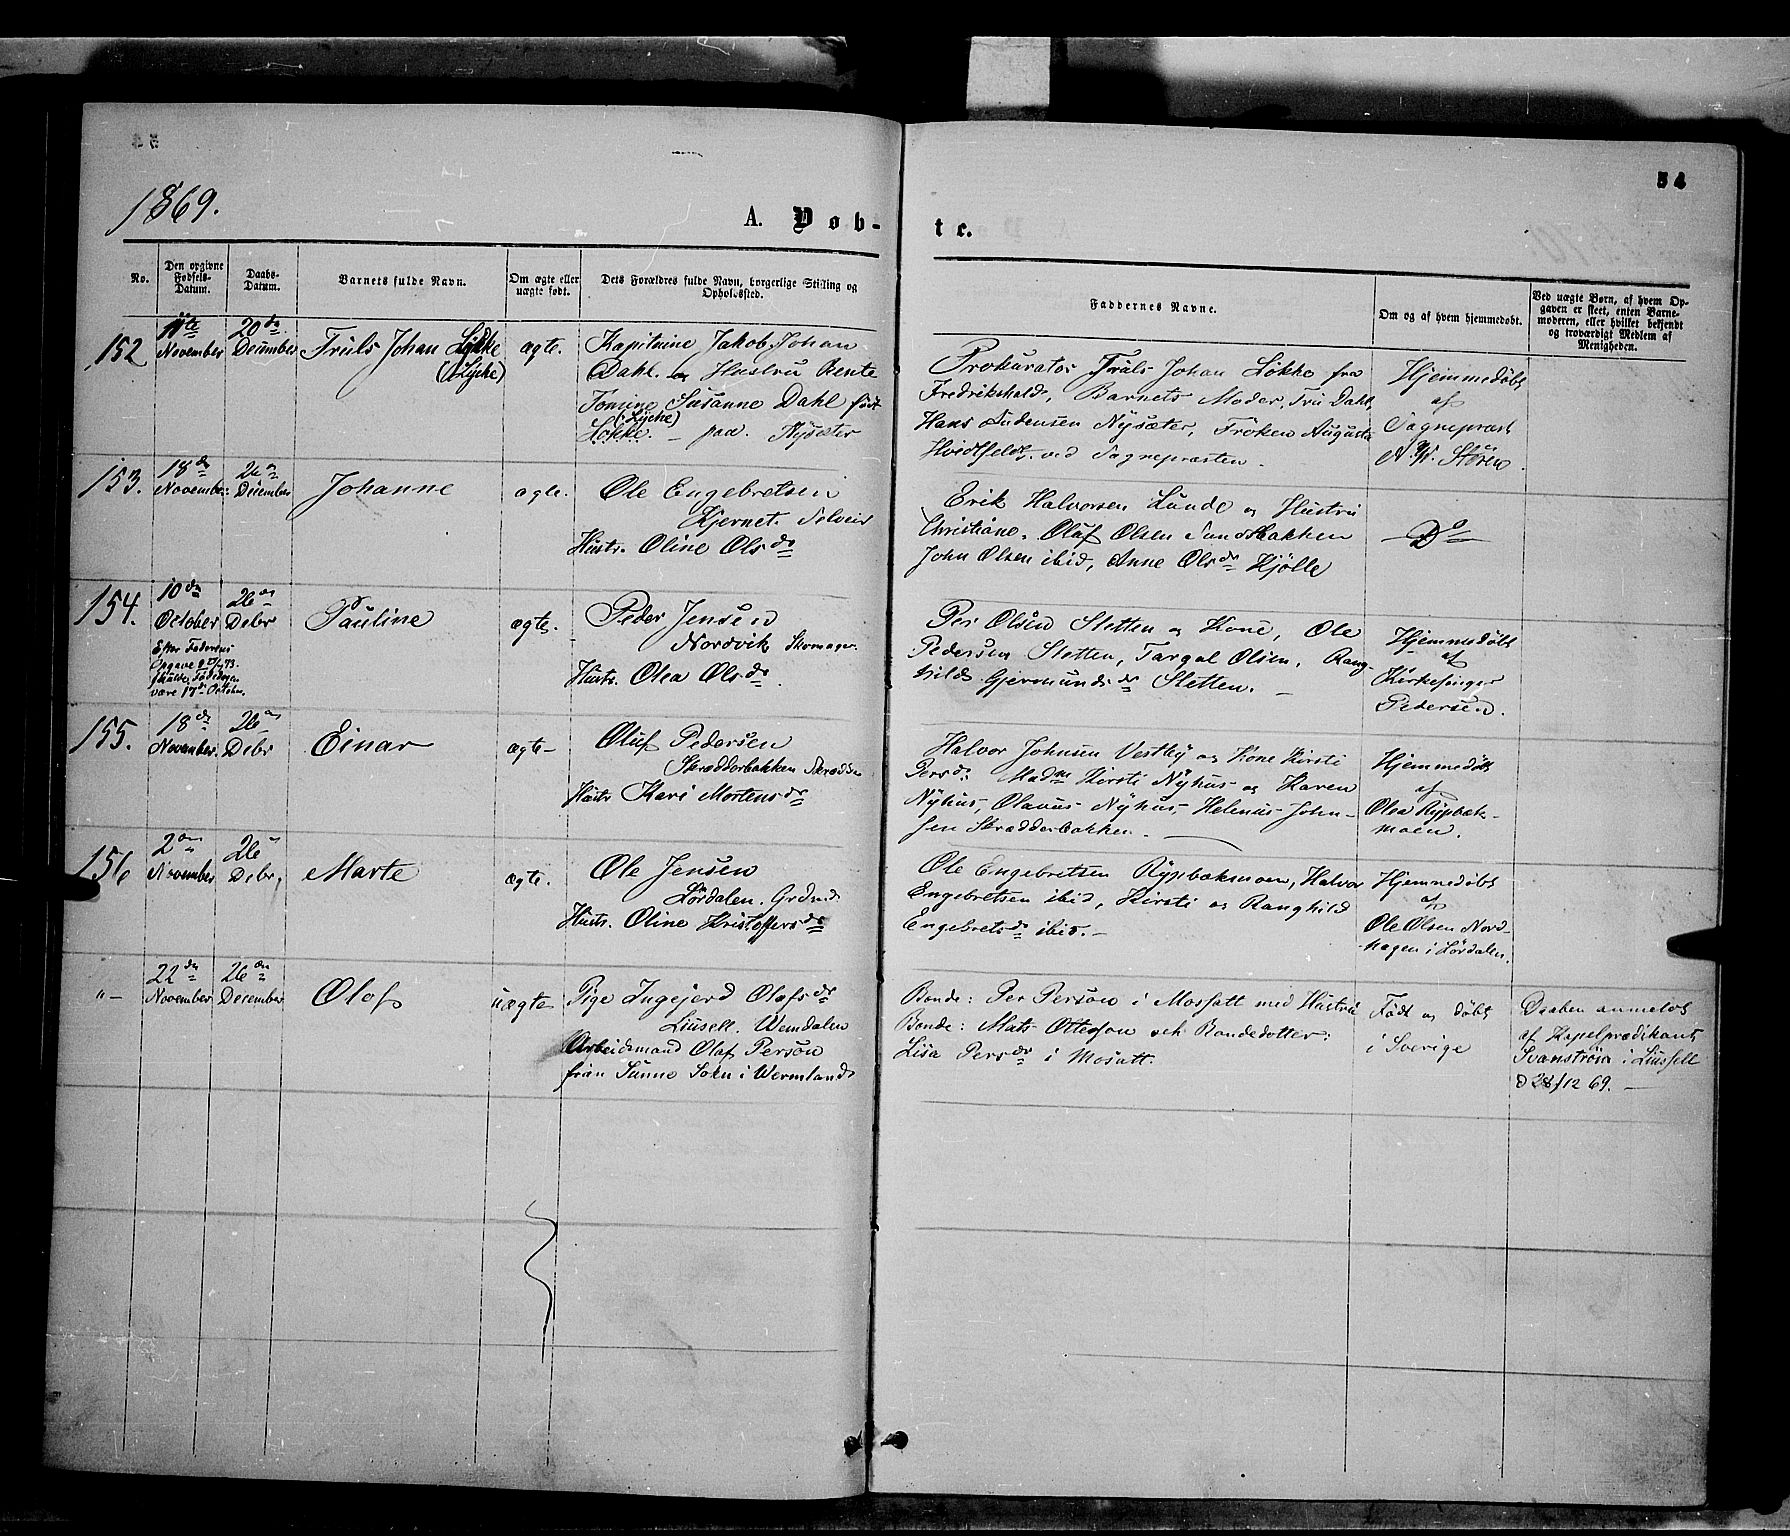 54
1869.
A. Døb-
te.
No.
Den opgivne Fødsels-Datum.
Daabs-Datum.
Barnets fulde Navn.
Om ægte eller uægte født.
Dets Forældres fulde Navn, borgerlige Stilling og Opholdssted.
Faddernes Navne.
Om og af hvem hjemmedøbt.
Ved uægte Børn, af hvem Opgaven er skeet, enten Barnemoderen, eller hvilket bekjendt og troværdigt Medlem af Menigheden.
152
11te November
20de December
Truls Johan Løkke
(Lycke)
ægte.
Kapitaine Jakob Johan
Dahl og Hustru Bente
Tomine Susanne Dahl født
(Lycke)
Løkke. – paa Nysæter
Prokurator Truls Johan Løkke fra
Fredrikshald, Barnets Moder, Fru Dahl,
Hans Nysæter, Frøken Augusta
Hvidtfeldt. ved Sognepræsten.
Hjemmedøbt
af
Sognepræst
Støren.
153.
18de November
26de December
Johanne
ægte.
Ole Engebretsen
Kjernet. Selveir
Hustr. Oline Olsdr
Erik Halvorsen Lunde og Hustru
Christiane. Oluf Olsen Sandbakken
John Olsen ibid, Anne Olsdr Kjölle
Do
154.
10de October
26de Debr
Efter Faderens
Opgave
skulde Fødselsdagen
være 17de Octobr.
Pauline
ægte.
Peder Jensen
Nordvik Skomager
Hustr. Olea Olsdr
Per Olsen Sletten og Kone, Ole
Pedersen Sletten, Targal Olsen, Rang-
hild Gjermundsdr Sletten. –
Hjemmedøbt
af
Kirkesanger
Pedersen.
155.
18de November.
26de Debr
Einar
ægte –
Oluf Pedersen
Skrædderbakken
Hustr Kari Mortensdr
Halvor Johnsen Vestby og Kone Kirsti
Persdr Madme Kirsti Nÿhus og Karen
Nÿhus, Olavus Nÿhus, Helenus John-
sen Skrædderbakken. –
Hjemmedøbt
af
Olea Rÿpbæk-
moen.
156
2den November
26de Debr,
Marte
ægte.
Ole Jensen
Lördalen. Grdmd
Hustr. Oline Kristoffersdr
Ole Engebretsen Rÿpbækmoen, Halvor
Engebretsen ibid, Kirsti og Ranghild
Engebretsdr ibid. –
Hjemmedøbt
af
Ole Olsen Nord-
hagen i Lördalen.
" –
22de November
26de December
Olof
uægte
Pige Ingejerd Olofsdr
Liusell. Wemdalen
Arbeidsmand Olof Person
från Sunne Sokn i Wermland
Bonde: Per Person i Mossatt med Hustru
Bonde: Mats Otteson och Bondedotter:
Lisa Persdr i Mosatt.
Født og døbt
i Sverige
Daaben anmeldt
af Kapelprædikant
Svanström i Liusell
d 28/12 69. –